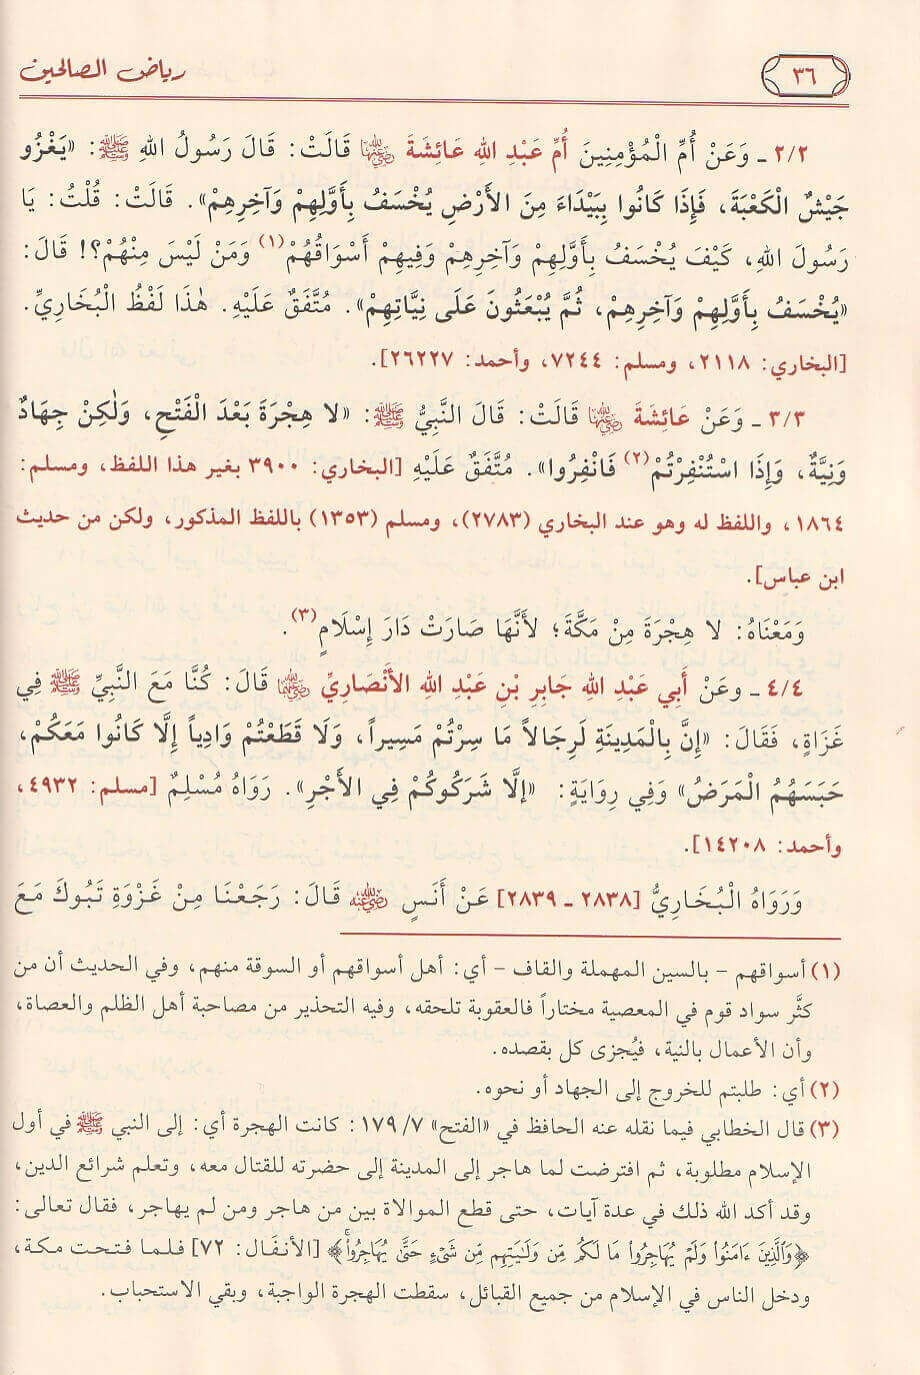 رياض الصالحين
٣٦
٢/٢ ـ وَعَنْ أُمِّ الْمُؤْمِنِينَ أُمِّ عَبْدِ اللهِ عَائِشَةَ رضي الله عنها قَالَتْ: قَالَ رَسُولُ اللهِ ﷺ: «يَغْزُو
جَيْشٌ الْكَعْبَةَ، فَإِذَا كَانُوا بِبَيْدَاءَ مِنَ الْأَرْضِ يُخْسَفُ بِأَوَّلِهِمْ وَآخِرِهِمْ». قَالَتْ: قُلْتُ: يَا
رَسُولَ اللهِ، كَيْفَ يُخْسَفُ بِأَوَّلِهِمْ وَآخِرِهِمْ وَفِيهِمْ أَسْوَاقُهُمْ(١) وَمَنْ لَيْسَ مِنْهُمْ؟! قَالَ:
«يُخْسَفُ بِأَوَّلِهِمْ وَآخِرِهِمْ، ثُمَّ يُبْعَثُونَ عَلَى نِيَّاتِهِمْ». مُتَّفَقٌ عَلَيْهِ. هٰذَا لَفْظُ الْبُخَارِيِّ.
[البخاري: ٢١١٨، ومسلم: ٧٢٤٤، وأحمد: ٢٦٢٢٧].
٣/٣ ـ وَعَنْ عَائِشَةَ رضي الله عنها قَالَتْ: قَالَ النَّبِيُّ ﷺ: «لا هِجْرَةَ بَعْدَ الْفَتْحِ، وَلٰكِنْ جِهَادٌ
وَنِيَّةٌ، وَإِذَا اسْتُنْفِرْتُمْ(٢) فَانْفِرُوا». مُتَّفَقٌ عَلَيْهِ [البخاري: ٣٩٠٠ بغير هذا اللفظ، ومسلم:
١٨٦٤، واللفظ له وهو عند البخاري (٢٧٨٣)، ومسلم (١٣٥٣) باللفظ المذكور، ولكن من حديث
ابن عباس].
وَمَعْنَاهُ: لا هِجْرَةَ مِنْ مَكَّةَ؛ لأَنَّهَا صَارَتْ دَارَ إِسْلَامٍ(٣).
٤/٤ ـ وعَنْ أَبِي عَبْدِ اللهِ جَابِرِ بْنِ عَبْدِ اللهِ الأَنْصَارِيِّ رضي الله عنهما قَالَ: كُنَّا مَعَ النَّبِيِّ ﷺ فِي
غَزَاةٍ، فَقَالَ: «إِنَّ بِالْمَدِينَةِ لَرِجَالاً مَا سِرْتُمْ مَسِيراً، وَلَا قَطَعْتُمْ وَادِياً إِلَّا كَانُوا مَعَكُمْ،
حَبَسَهُمُ الْمَرَضُ» وَفِي رِوَايَةٍ: «إلَّا شَرَكُوكُمْ فِي الأَجْرِ». رَوَاهُ مُسْلِمٌ [مسلم: ٤٩٣٢،
وأحمد: ١٤٢٠٨].
وَرَوَاهُ الْبُخَارِيُّ [٢٨٣٨ ـ ٢٨٣٩] عَنْ أَنَسٍ رضي الله عنه قَالَ: رَجَعْنَا مِنْ غَزْوَةِ تَبُوكَ مَعَ
(١) أسواقهم - بالسين المهملة والقاف - أي: أهل أسواقهم أو السوقة منهم، وفي الحديث أن من
كثَّر سواد قوم في المعصية مختاراً فالعقوبة تلحقه، وفيه التحذير من مصاحبة أهل الظلم والعصاة،
وأن الأعمال بالنية، فيُجزى كل بقصده.
(٢) أي: طلبتم للخروج إلى الجهاد أو نحوه.
(٣) قال الخطابي فيما نقله عنه الحافظ في «الفتح» ١٧٩/٧: كانت الهجرة أي: إلى النبي ﷺ في أول
الإسلام مطلوبة، ثم افترضت لما هاجر إلى المدينة إلى حضرته للقتال معه، وتعلم شرائع الدين،
وقد أكد الله ذلك في عدة آيات، حتى قطع الموالاة بين من هاجر ومن لم يهاجر، فقال تعالى:
﴿وَالَّذِينَ ءَامَنُوا۟ وَلَمْ يُهَاجِرُوا۟ مَا لَكُم مِّن وَلَٰيَتِهِم مِّن شَىْءٍ حَتَّىٰ يُهَاجِرُوا۟ۚ﴾ [الأنفال: ٧٢] فلما فتحت مكة،
ودخل الناس في الإسلام من جميع القبائل، سقطت الهجرة الواجبة، وبقي الاستحباب.